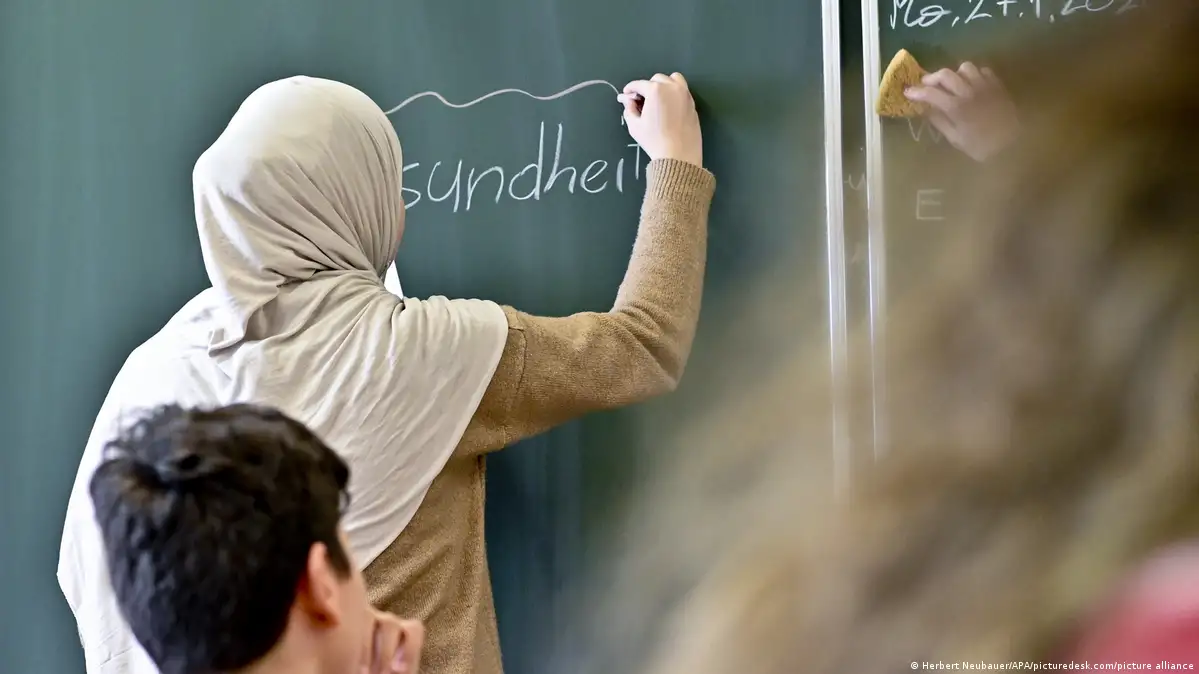 Mo, 27.1.202
sundheit
E
© Herbert Neubauer/APA/picturedesk.com/picture alliance